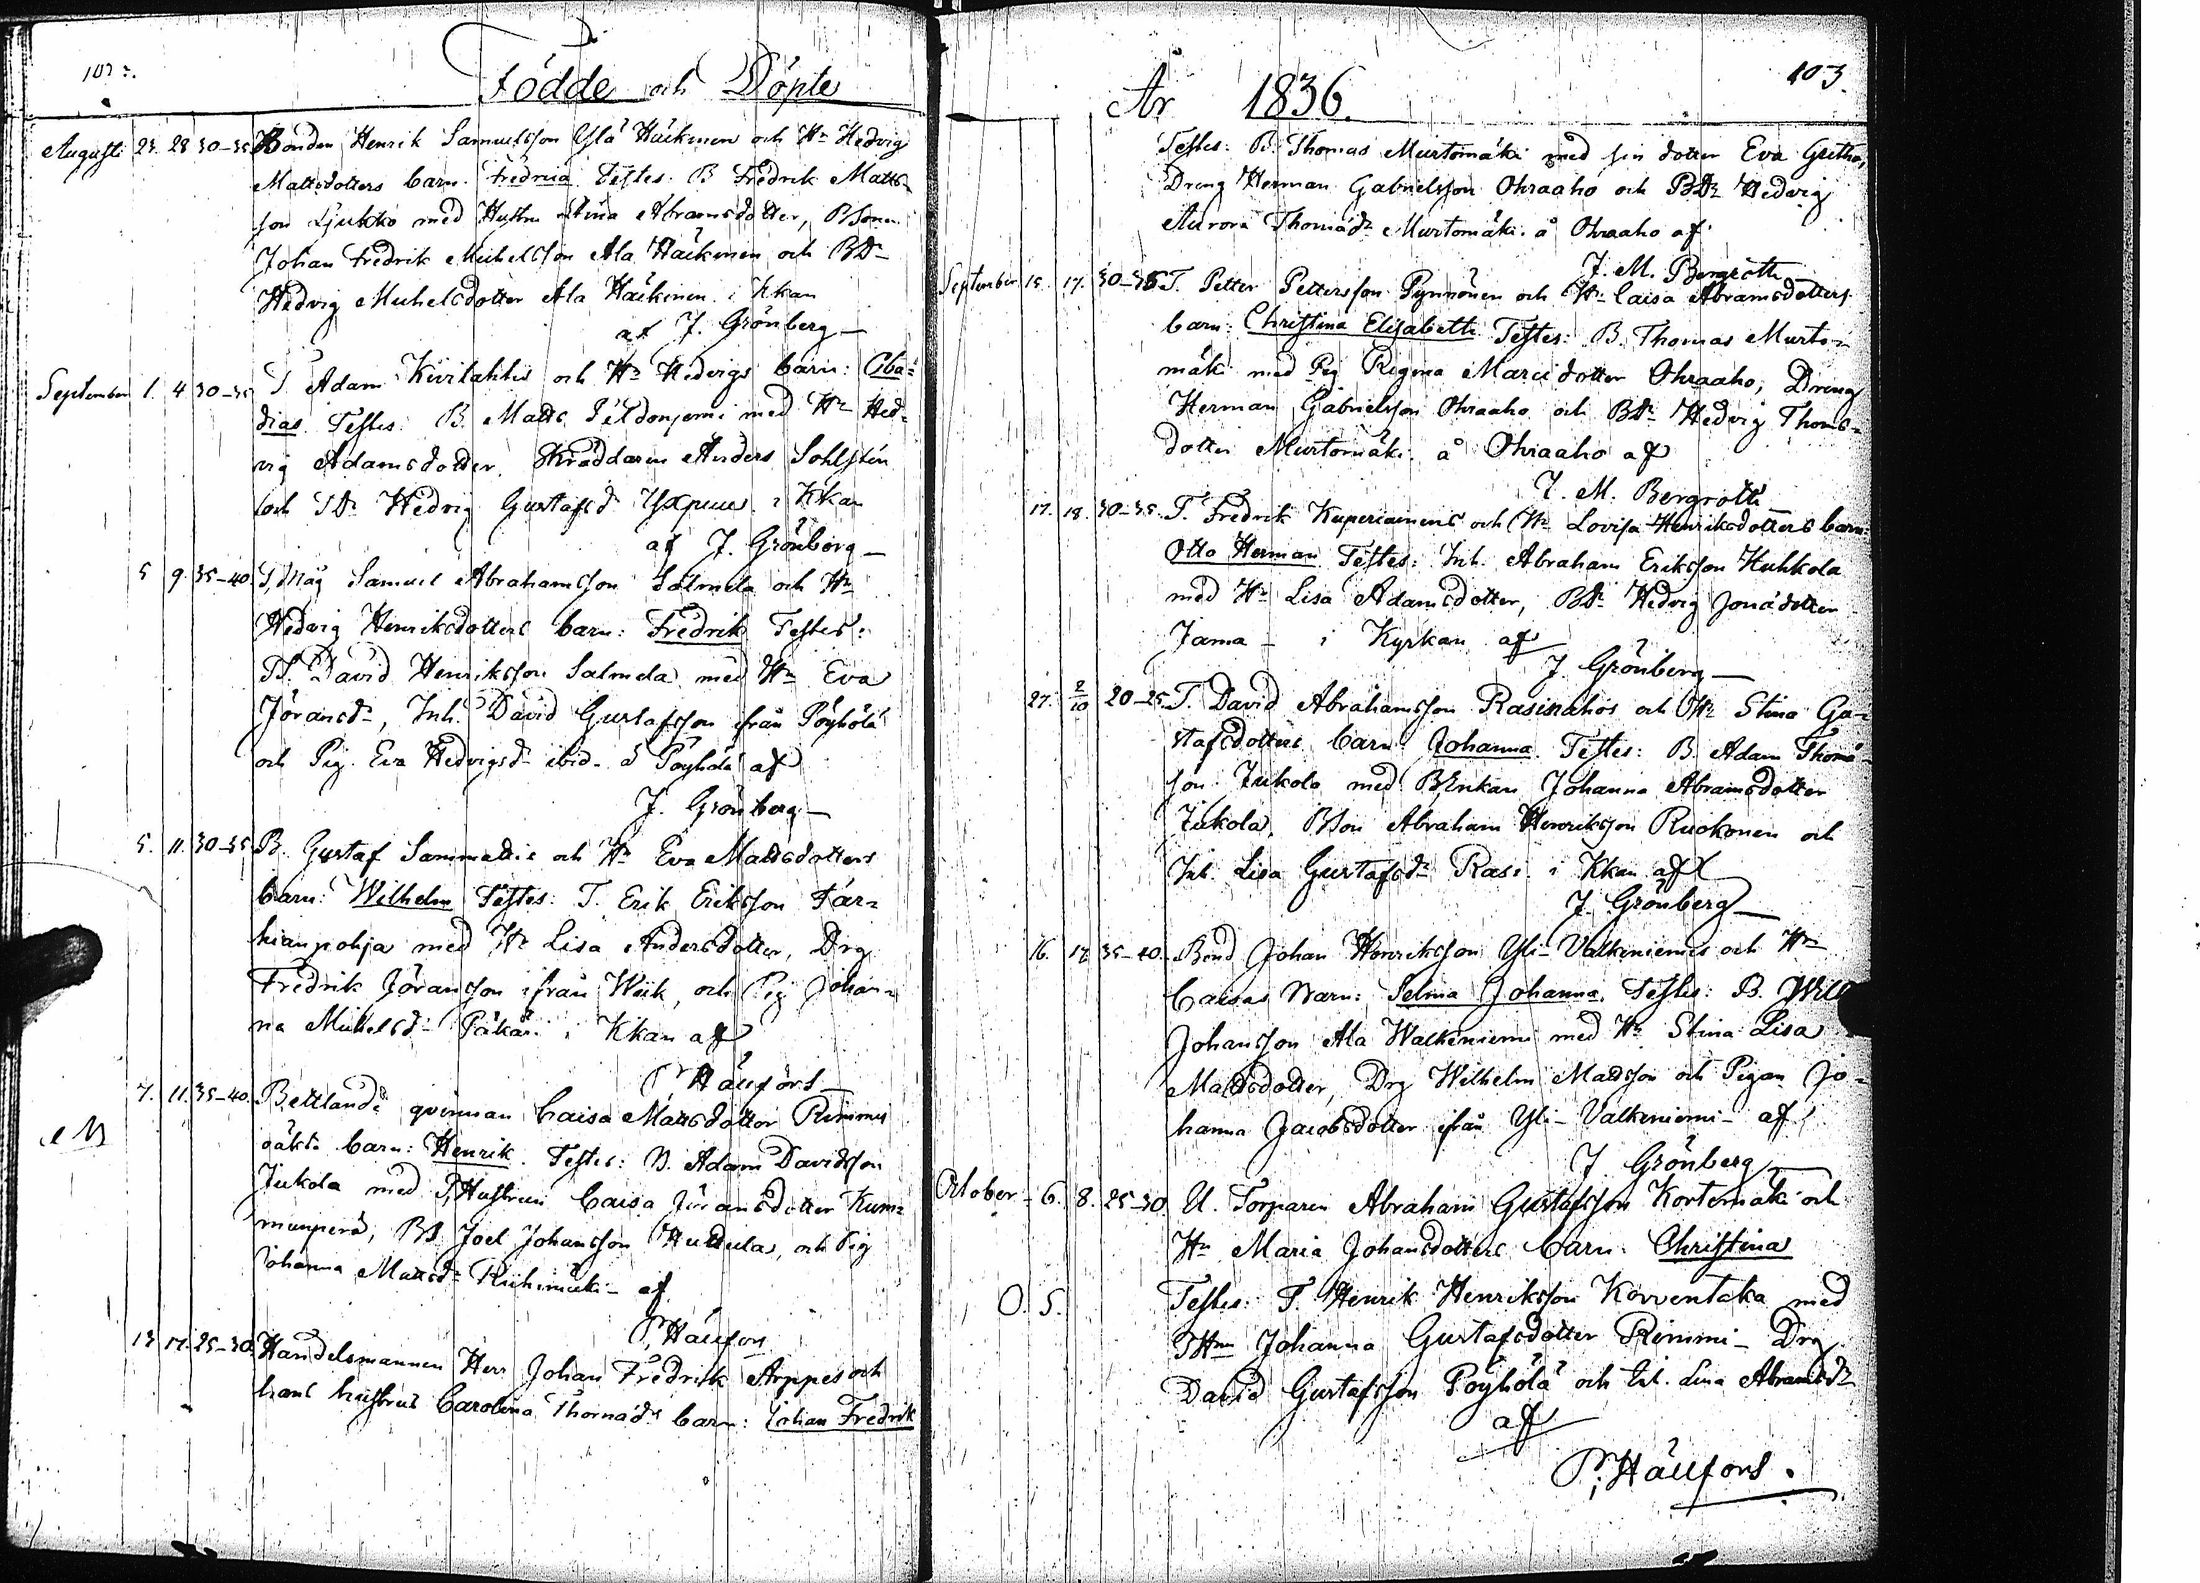 102.
Födde och Döpte
Augusti 23. 28 30-35 Bonden Henrik Samuelsson Ylä Häckinen och Hu Hedvig
Mattsdotters barn. Fredrica Testes. B Fredrik Matts-
son Ljukko med Hustru Stina Abramsdotter, BSonen
Johan Fredrik Michelsson Ala Häckinen och BDr
Hedvig Michelsdotter Ala Häckinen. i Kkan
af J. Grönberg
September 1. 4 30-35 T Adam Kivilahtis och Hu Hedvigs barn: Oba-
dias. Testes. B. Matts Peldonjemi med Hu Hed-
vig Adamsdotter. Skräddaren Anders Sohlsten
och TDr Hedvig Gustafsd i Kkan
af J. Grönberg
5 9. 35-40. T,Måg Samuel Abrahamsson Salmela och Hu
Hedvig Henriksdotters barn: Fredrik Testes:
TS. David Henriksson Salmela med Hu Eva
Jöransdr, Inh. David Gustafsson ifrån Pöyhölä
och Pig. Eva Hedvigsdr ibid. å Pöyhölä af
J. Grönberg
5. 11. 30-35 B. Gustaf Sammattis och Hu Eva Mattsdotters
barn: Wilhelm Testes: T. Erik Eriksson Tar-
hianpohja med Hu Lisa Andersdotter, Drg
Fredrik Jöransson ifrån Wiik, och Pig Johan-
na Michelsdr Päkäri i Kkan af
P. Häufors
7. 11. 35-40. Bettlande qvinnan Caisa Mattsdotter Rimmis
oäkta barn: Henrik. Testes: B. Adam Davidsson
Jukola med T,Hustrun Caisa Jöransdotter Kum-
munperä, BS Joel Johansson Huttula, och Pig
Johanna Mattsdr Riihimäki af
P. Häufors
13 17. 25-30. Handelsmannen Herr Johan Fredrik Arppes och
hans hustrus Carolina Thomædrs barn: Johan Fredrik
103.
År 1836.
Testes: B. Thomas Murtomäki med sin dotter Eva Gretha,
Dreng Herman Gabrielsson Ohraaho och BDr Hedvig
Aurora Thomædr Murtomäki. å Ohraaho af
J. M. Bergroth
September 15. 17. 30-35 T. Petter Pettersson Pynnönen och Hu Caisa Abramsdotters
barn: Christina Elisabeth Testes: B. Thomas Murto-
mäki med Pig Regina Maricdotter Ohraaho, Dreng
Herman Gabrielsson Ohraaho och BDr Hedvig Thoms-
dotter Murtomäki å Ohraaho af
J. M. Bergroth
17. 18. 30-35. T. Fredrik Kuperiainens och Hu Lovisa Henriksdotters barn:
Otto Herman Testes: Inh. Abraham Eriksson Huhkola
med Hu Lisa Adamsdotter, BDr Hedvig Jonædotter
Jama i Kyrkan af
J Grönberg
27. 2/10 20-25. T. David Abrahamsson Rasinahos och Hu Stina Gu-
stafsdotters barn Johanna Testes: B. Adam Thomæ-
son Jukola med BEnkan Johanna Abramsdotter
Jukola. BSon Abraham Henriksson Ruokonen och
Inh. Lisa Gustafsdr Rasi i Kkan af
J. Grönberg
16. 17. 35-40. Bond Johan Henriksson Yli-Valkeniemis och Hu
Caisas Barn: Selma Johanna. Testes: B. Will
Johansson Ala Walkeniemi med Hu Stina Lisa
Mattsdotter, Drg Wilhelm Mattsson och Pigan Jo-
hanna Jacobsdotter ifrån Yli-Valkeniemi af
J Grönberg
October 6. 8. 25-30. U. Torparen Abraham Gustafsson Kortemäki och
Hu Maria Johansdotters barn: Christina
O. S. Testes: T. Henrik Henriksson Korventaka med
Johanna Gustafsdotter Rimmi Drg
David Gustafsson Pöyhölä och Inh. Lina Abramsdr
af
P. Häufors.